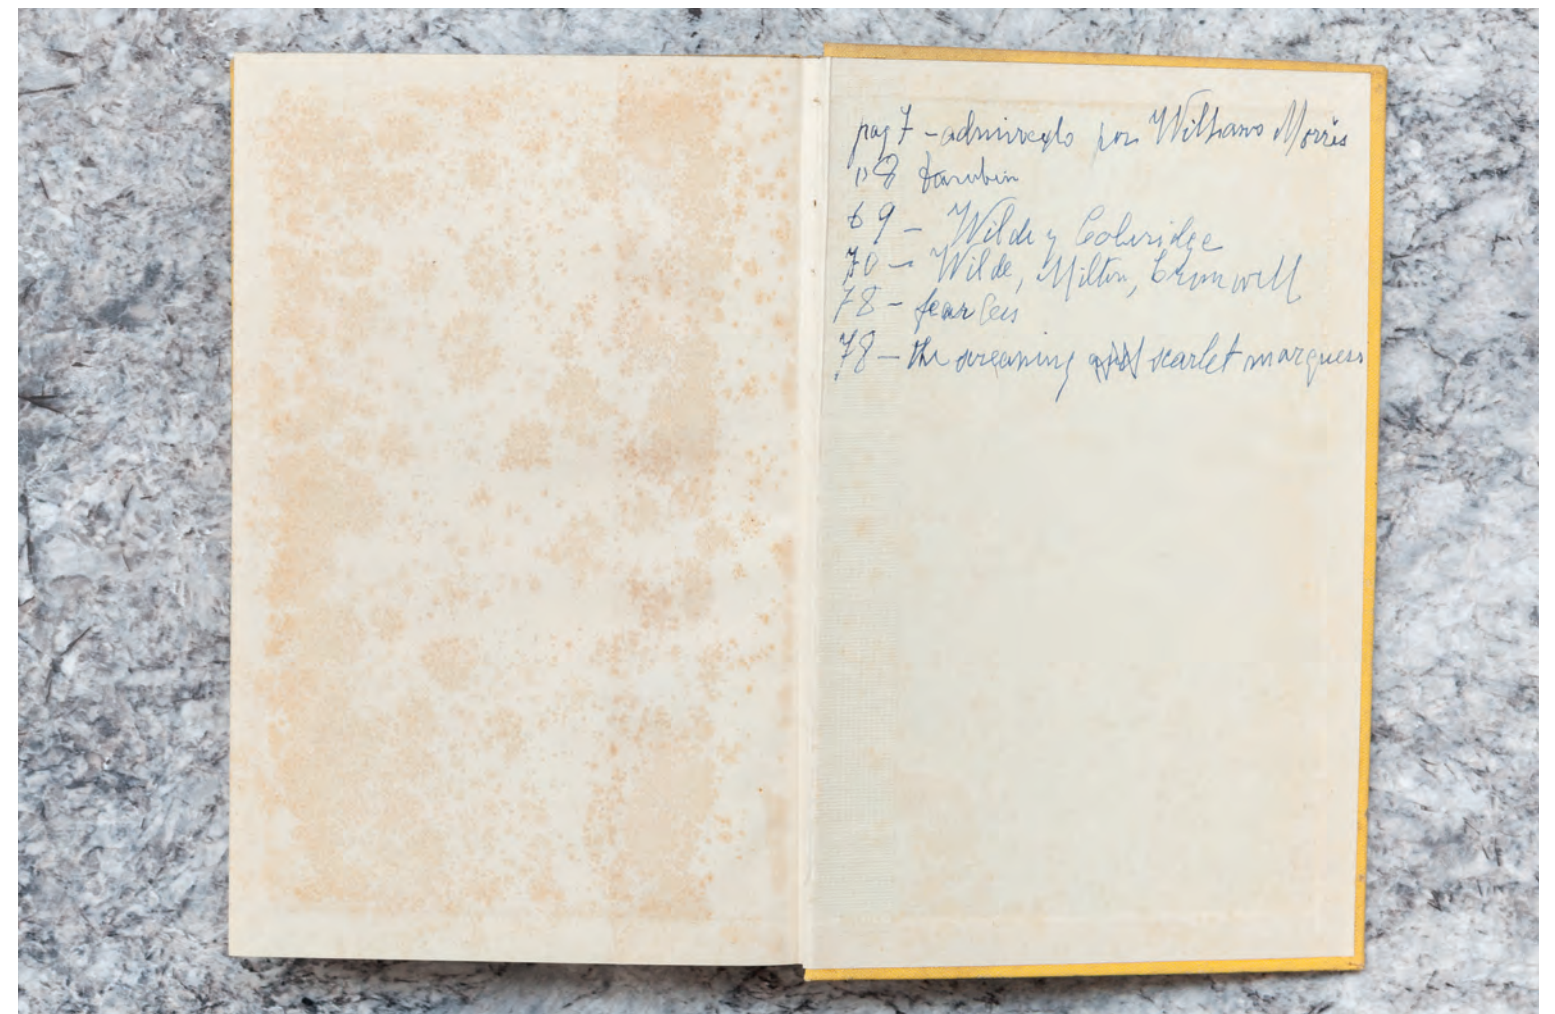 pag 7 - admirado por William Morris
" 8
69 - Wilde y Coleridge
70 - Wilde, Milton, Cromwell
78 - fearless
78 - the screaming scarlet marquess